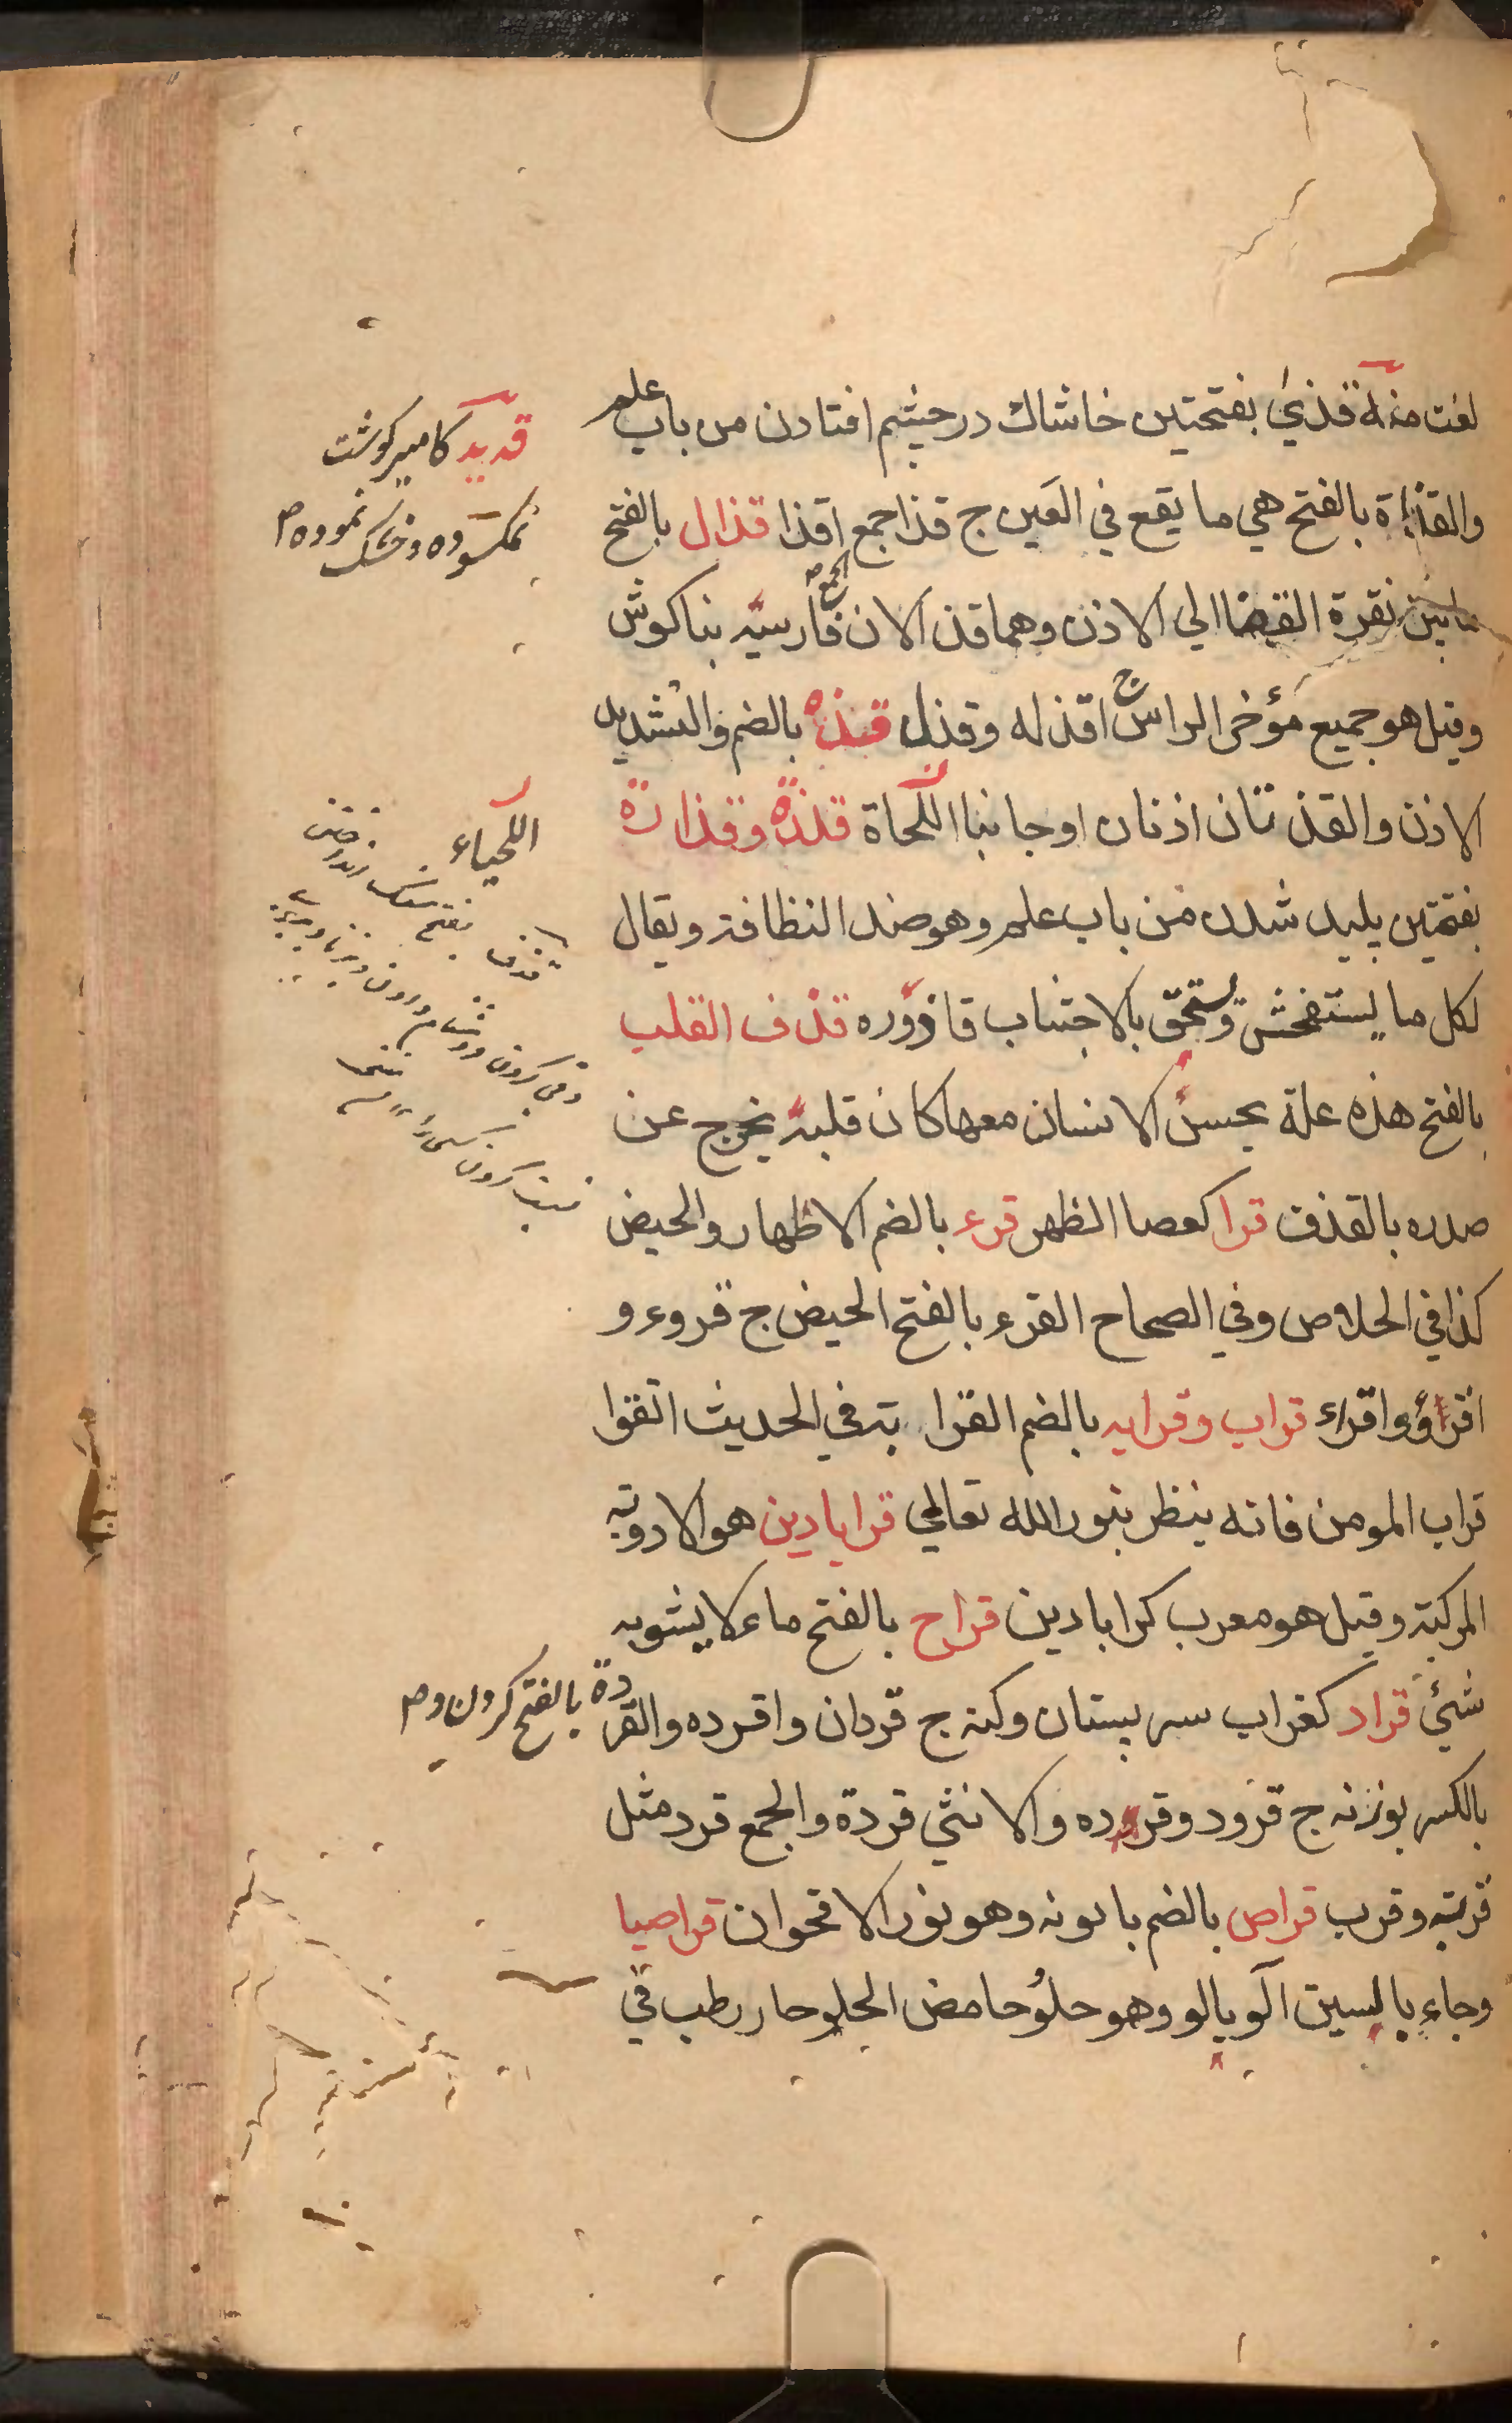 لغت منه قذي بفتحتين خاشاك درچشم افتادن من باب علم
والقذاة بالفتح هي ما يقع في العين ج قذا جمع اقذا قذال بالفتح
مابين نقرة القفا الي الاذن وهما قذ الان فارسيه بناكوش
الجمع
وقيل هو جميع مؤخر الراس ج اقذله وقذل قذه بالضم والتشديد
الاذن والقذ تان اذنان او جانبا اللحاة قذذة وقذارة
بفتحتين پليد شدن من باب علم وهو ضد النظافة ويقال
لكل ما يستفحش ويستحق بالاجتناب قاذوره قذف القلب
بالفتح هذه علة يحس الانسان معها كان قلبه يخرج عن
صدره بالقذف قرا كعصا الظهر قرء بالضم الاظهار والحيض
كذا في الخلاص وفي الصحاح القرء بالفتح الحيض ج قروء و
اقرؤ واقراء قراب وقرابه بالضم القرابة في الحديث اتقوا
قراب المومن فانه ينظر بنور الله تعالي قرابادين هو الادوية
المركبة وقيل هو معرب كرابادين قراح بالفتح ماء لا يشوبه
شيئ قراد كغراب سر پستان وكنه ج قردان واقرده والقردة
بالفتح كرون وم
بالكسر بوزنه ج قرود وقرده والانثي قردة والجمع قرد مثل
قربة وقرب قراص بالضم بابونه وهو نور الاقحوان قراصيا
وجاء بالسين آلوبالو وهو حلو حامض الحلو حار رطب في
قديد كامير كوشت
نمكسوده وخشك نموده م
اللحياء
قذف بفتح سنك انداختن
وقي كردن ودشنام دادن
نسبت كردن كسي را